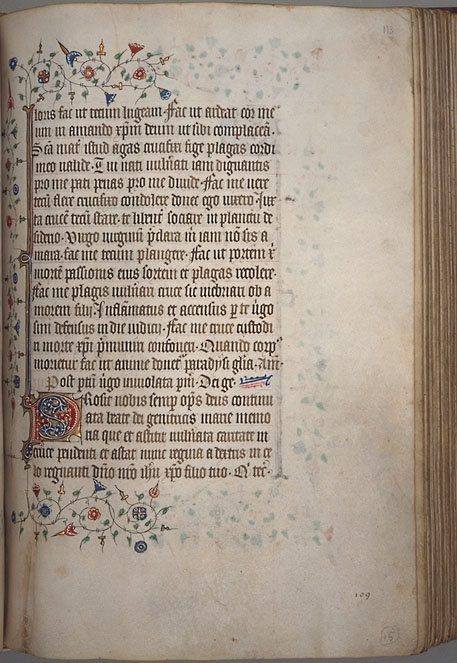 113
loris fac ut tecum lugeam · Fac ut ardeat cor me
um in amando xpm deum ut sibi complaceā ·
Scā mat̄ istud agas crucifixi fige plagas cordi
meo valide · Tui nati vulnerati iam dignantis
pro me pati penas pro me divide · Fac me vere
tecū flere crucifixo condolere donec ego vixero · Jux
ta crucē tecū stare te libent̄ sociare in planctu de
siderio · Virgo virginū p̄clara m̄ iam nō sis a
mara · fac me tecum plangere · Fac ut portem x̄
mortē passionis eius sortem et plagas recolere ·
Fac me plagis vulnerari cruce hac inebriari ob a
morem filii · Inflāmatus et accensus per te v̄go
sim defensus in die iudicij · Fac me cruce custodi
ri morte xp̄i p̄muniri confoveri · Quando corp̄
morietur fac ut anime donet̄ paradysi glīa · Am̄ ·
Post ptū v̄go inviolata p̄m · Dei ge ·
roste nobis semp̄ op̄s deus continu
ata beate dei genitricis marie memo
ria que et astitit vulnerata caritate in
cruce pendenti et astat nunc regina a dextris in ce
lo regnanti dn̄o nr̄o ihū xp̄o filio tuo · Q̄ tec̄ ·
109